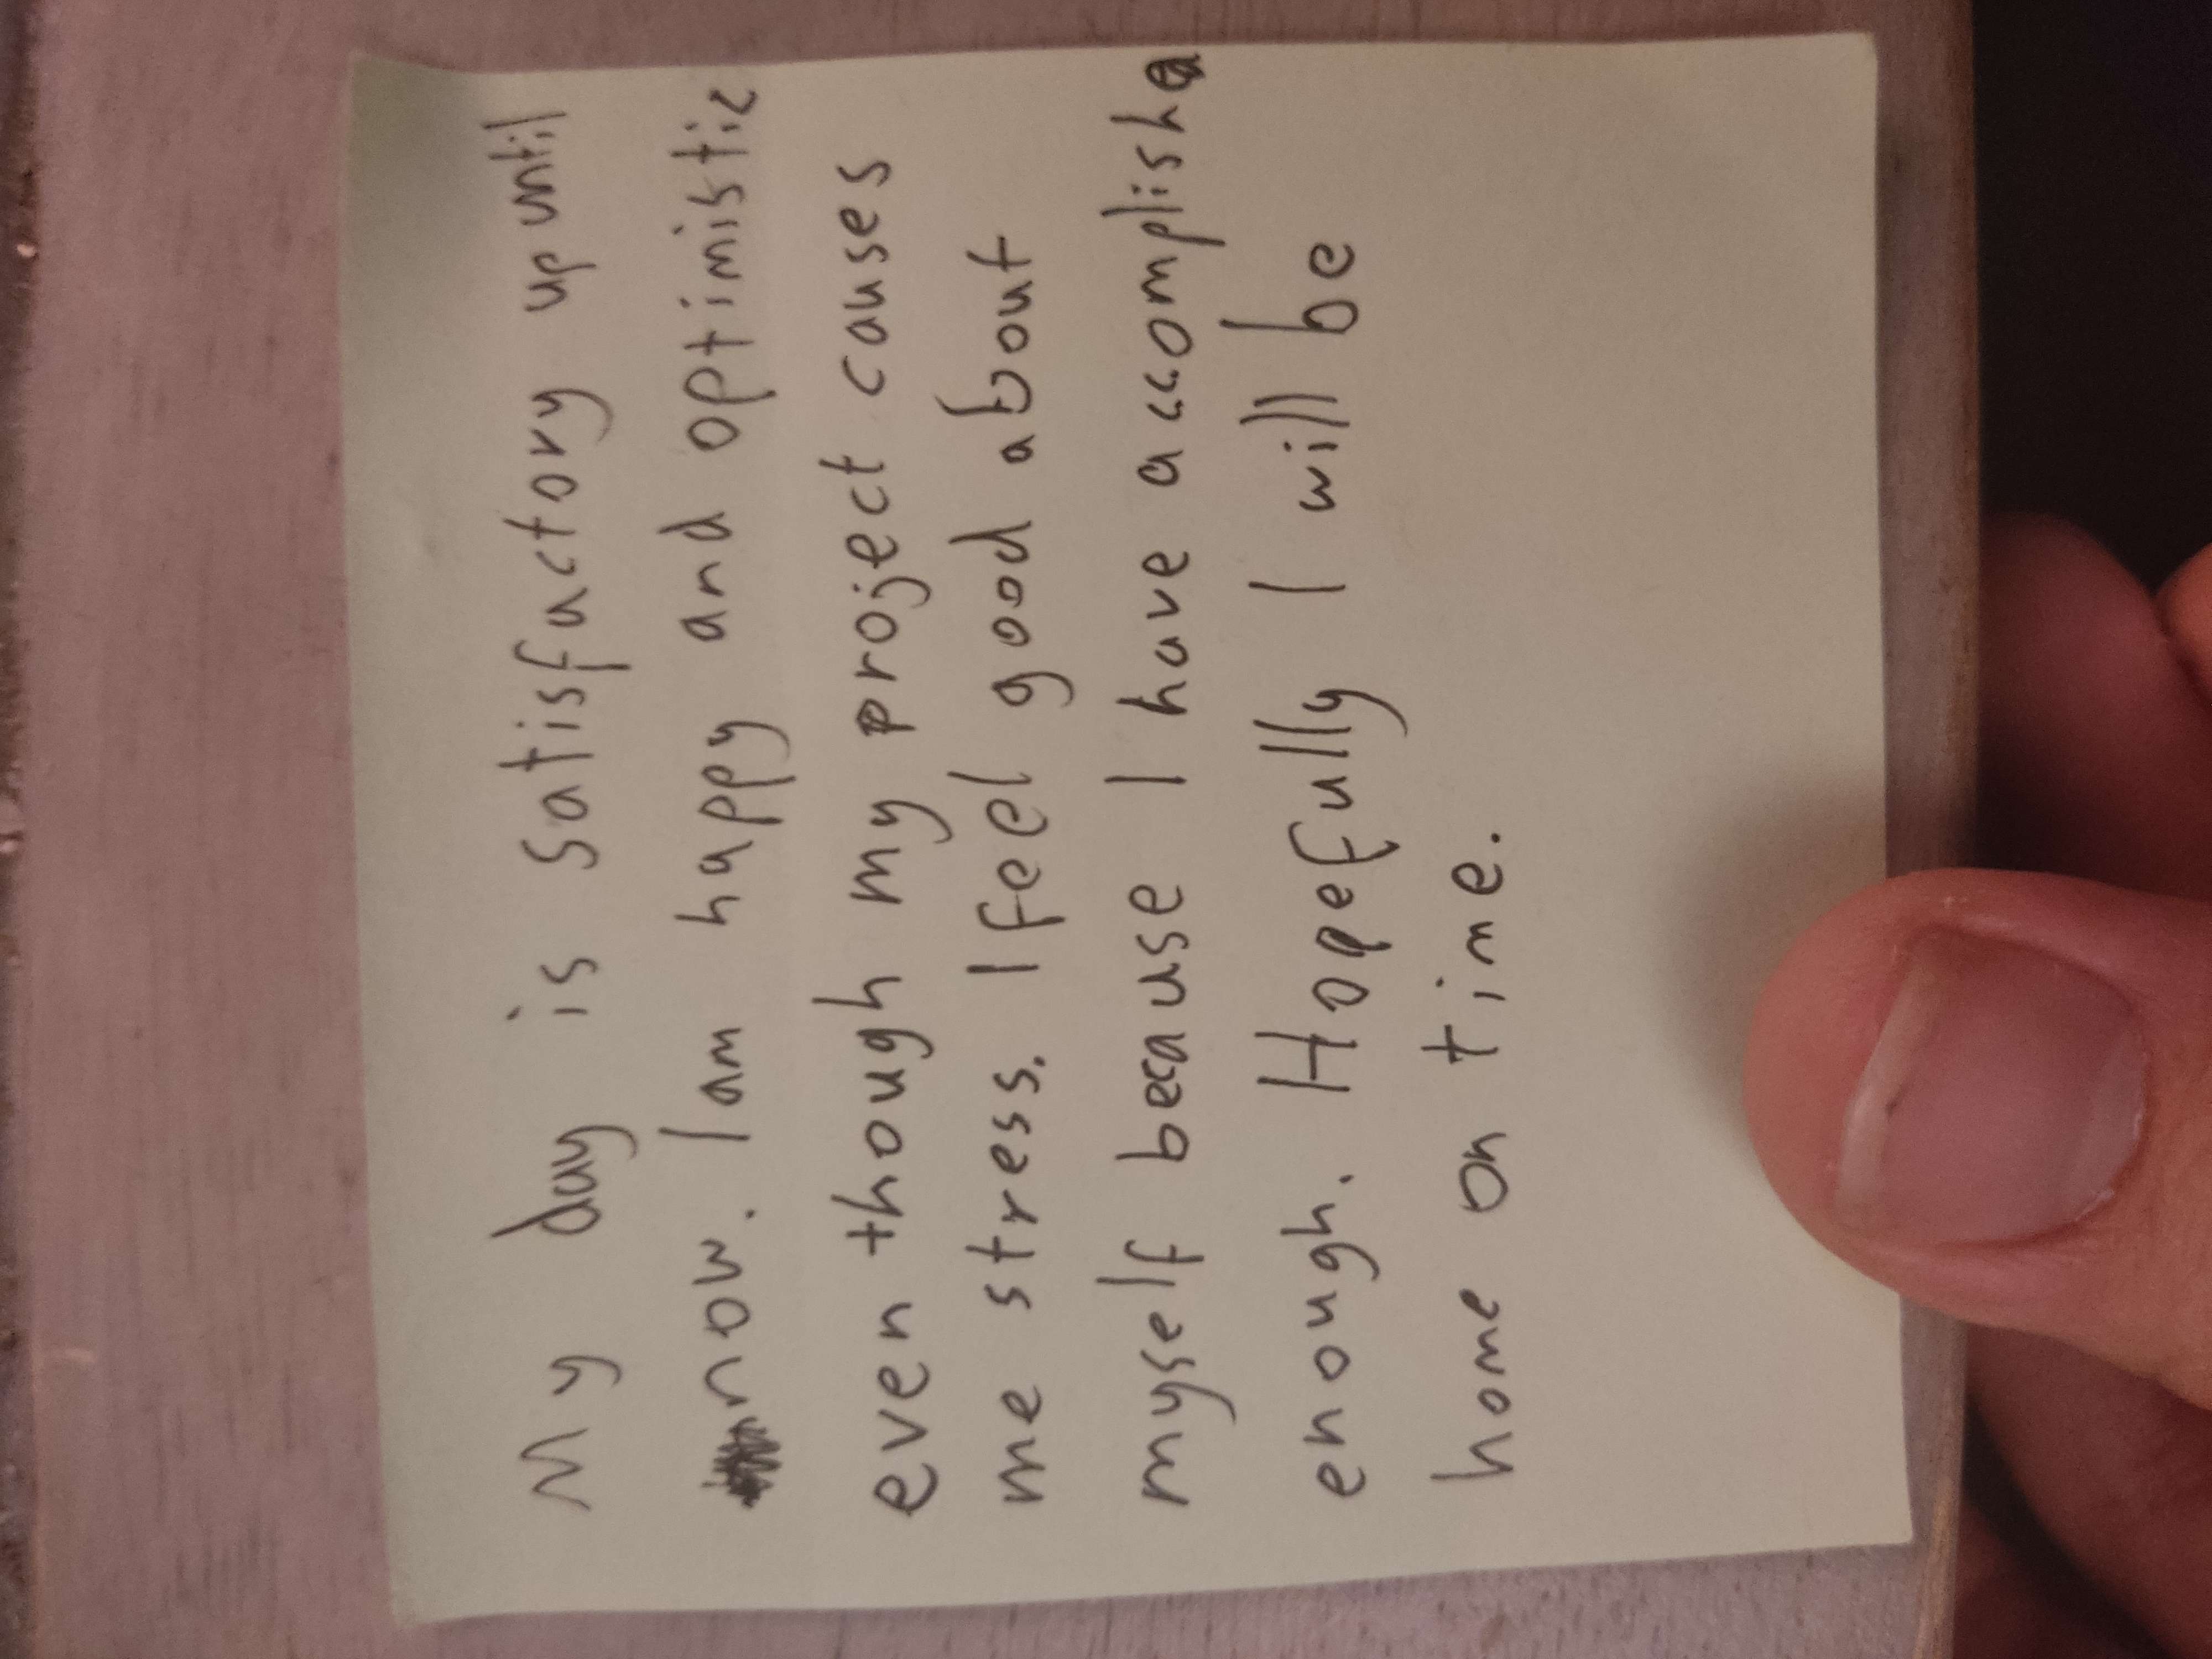 My day is satisfactory up until
now. I am happy and optimistic
even though my project causes
me stress. I feel good about
myself because I have accomplished
enough. Hopefully I will be
home on time.